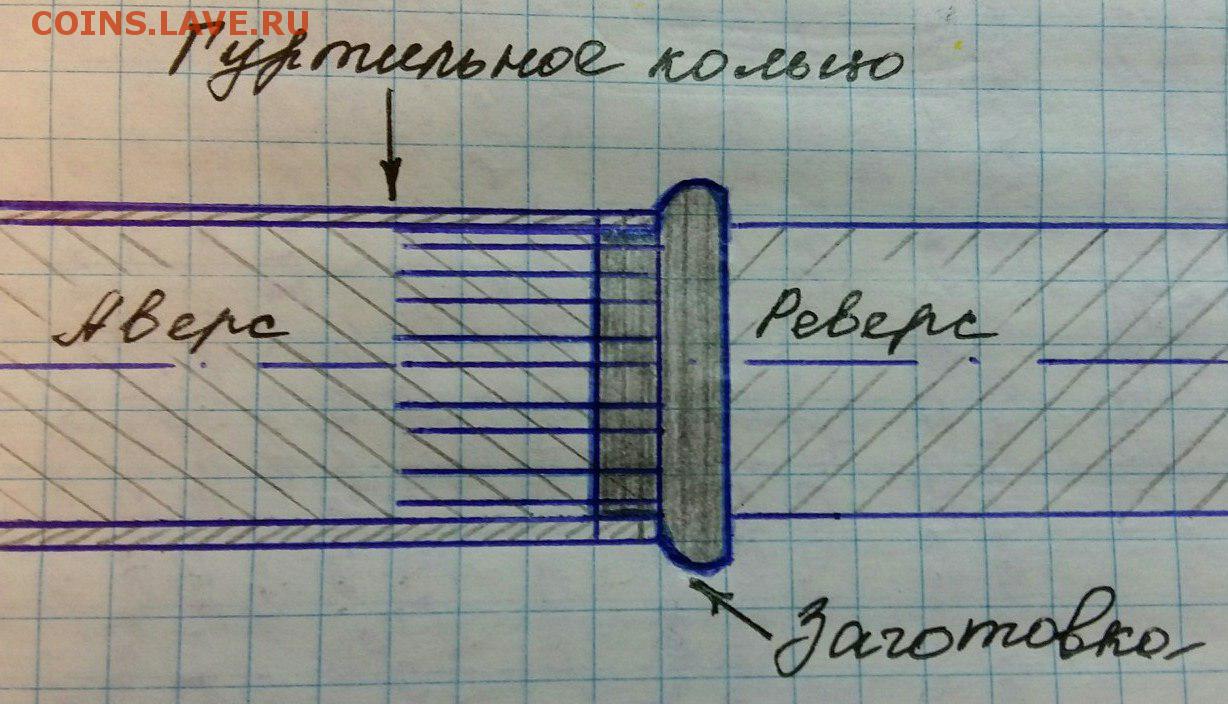 COINS.LAVE.RU
Гуртильное кольцо
Аверс
Реверс
Заготовка